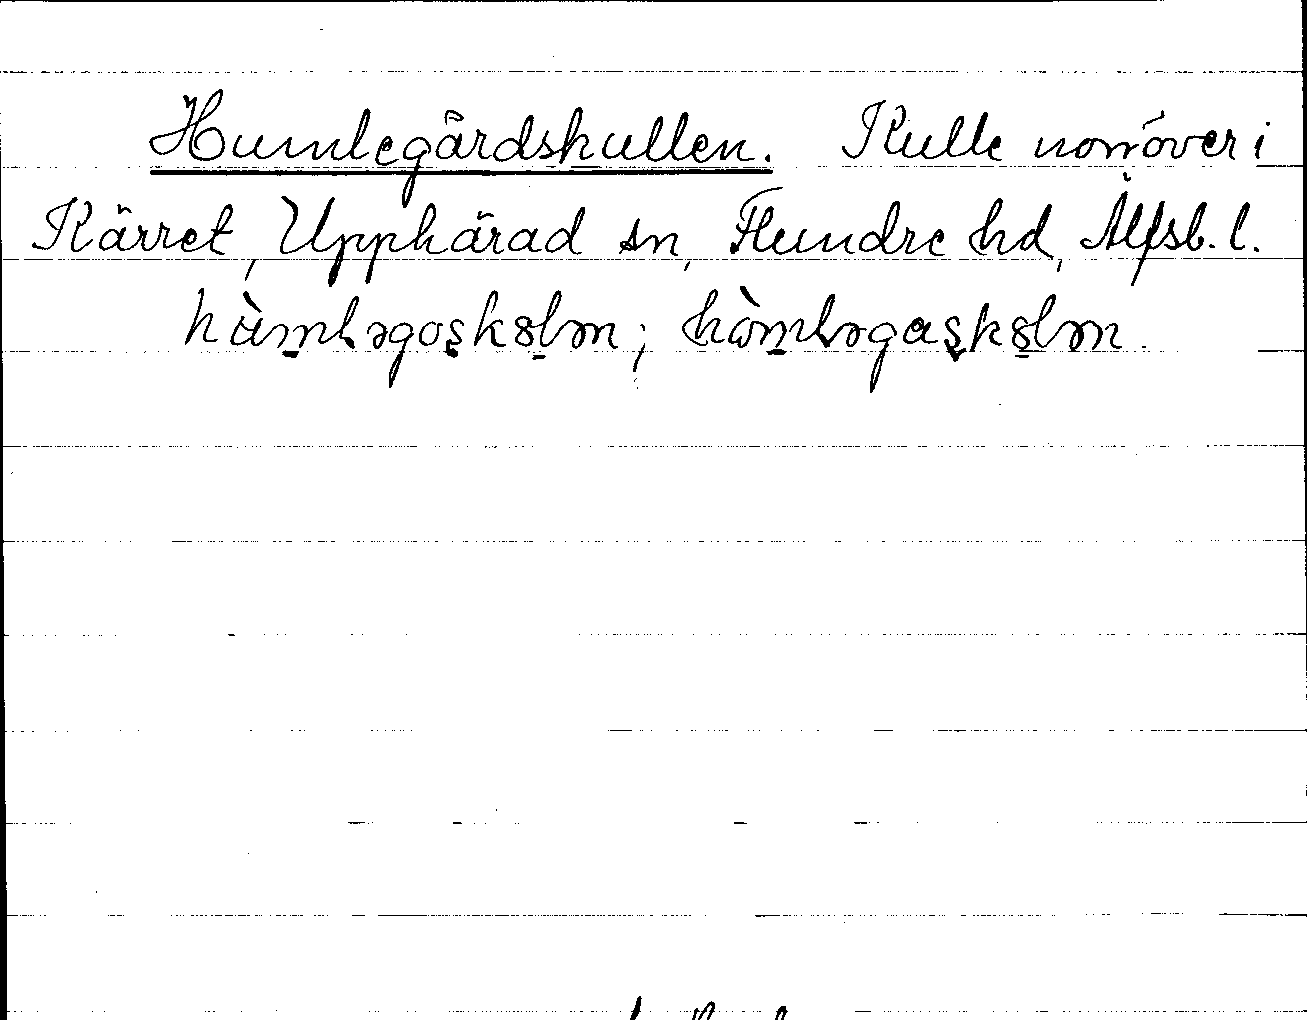 Humlegårdskullen. Kulle norröver i
Kärret, Upphärad sn, Flundre hd, Älfsb. l.
hùmləgoşkɞlən; hòmləgaşkɞlən.